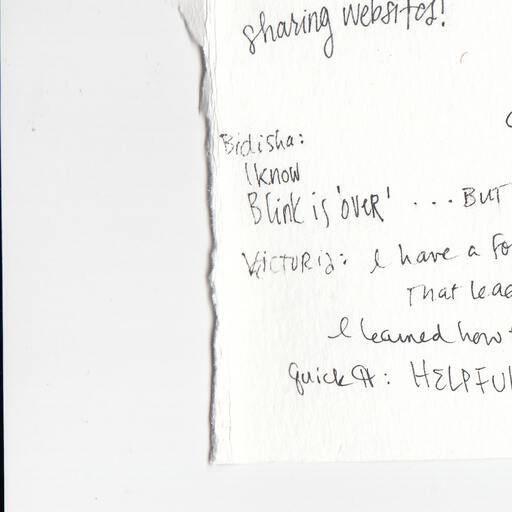 sharing websites!
Bidisha:
I know
Blink is 'over' ... BUT
Victoria: I have a fo
That lea
I learned how
quick
: HELPFUl